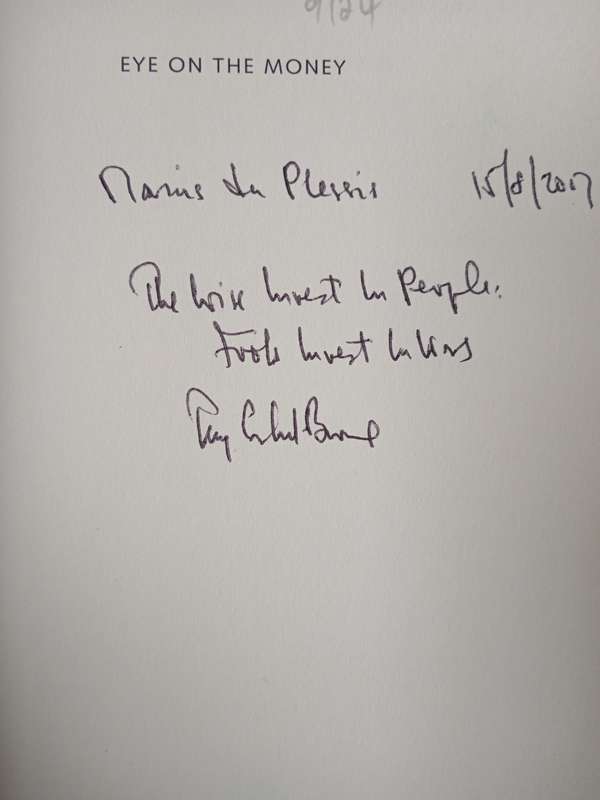 9/24
EYE ON THE MONEY
Marius du Plessis 15/8/2017
The Wise Invest In People.
Fools Invest In